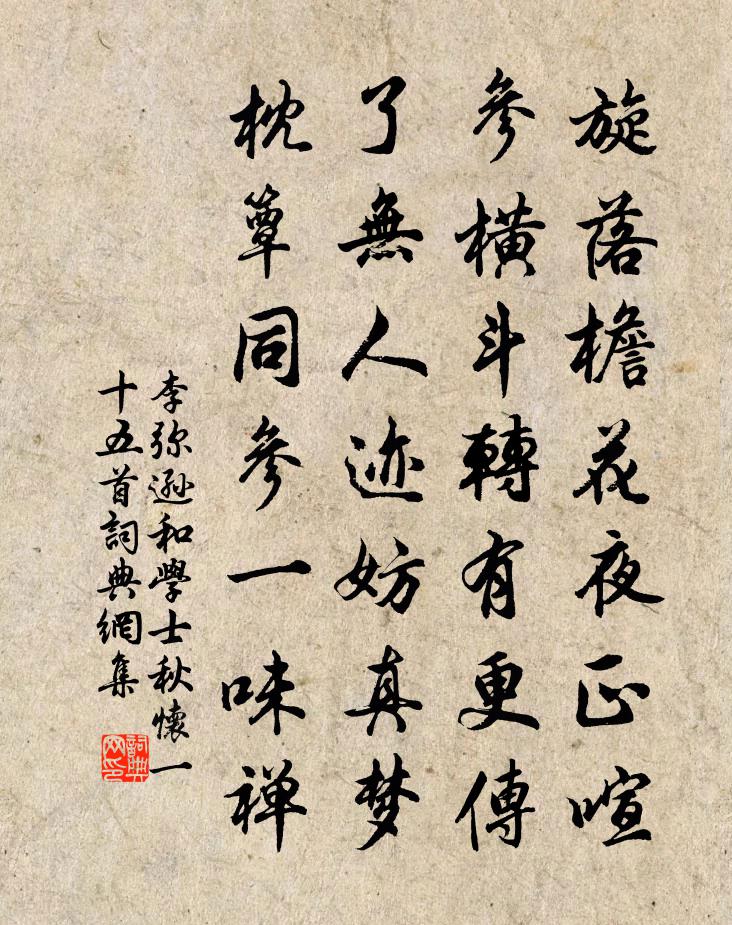 旋落檐花夜正喧
參橫斗轉有更傳
了無人迹妨真梦
枕簟同參一味禅
李弥遜和學士秋懷一
十五首詞典網集
詞典
网印